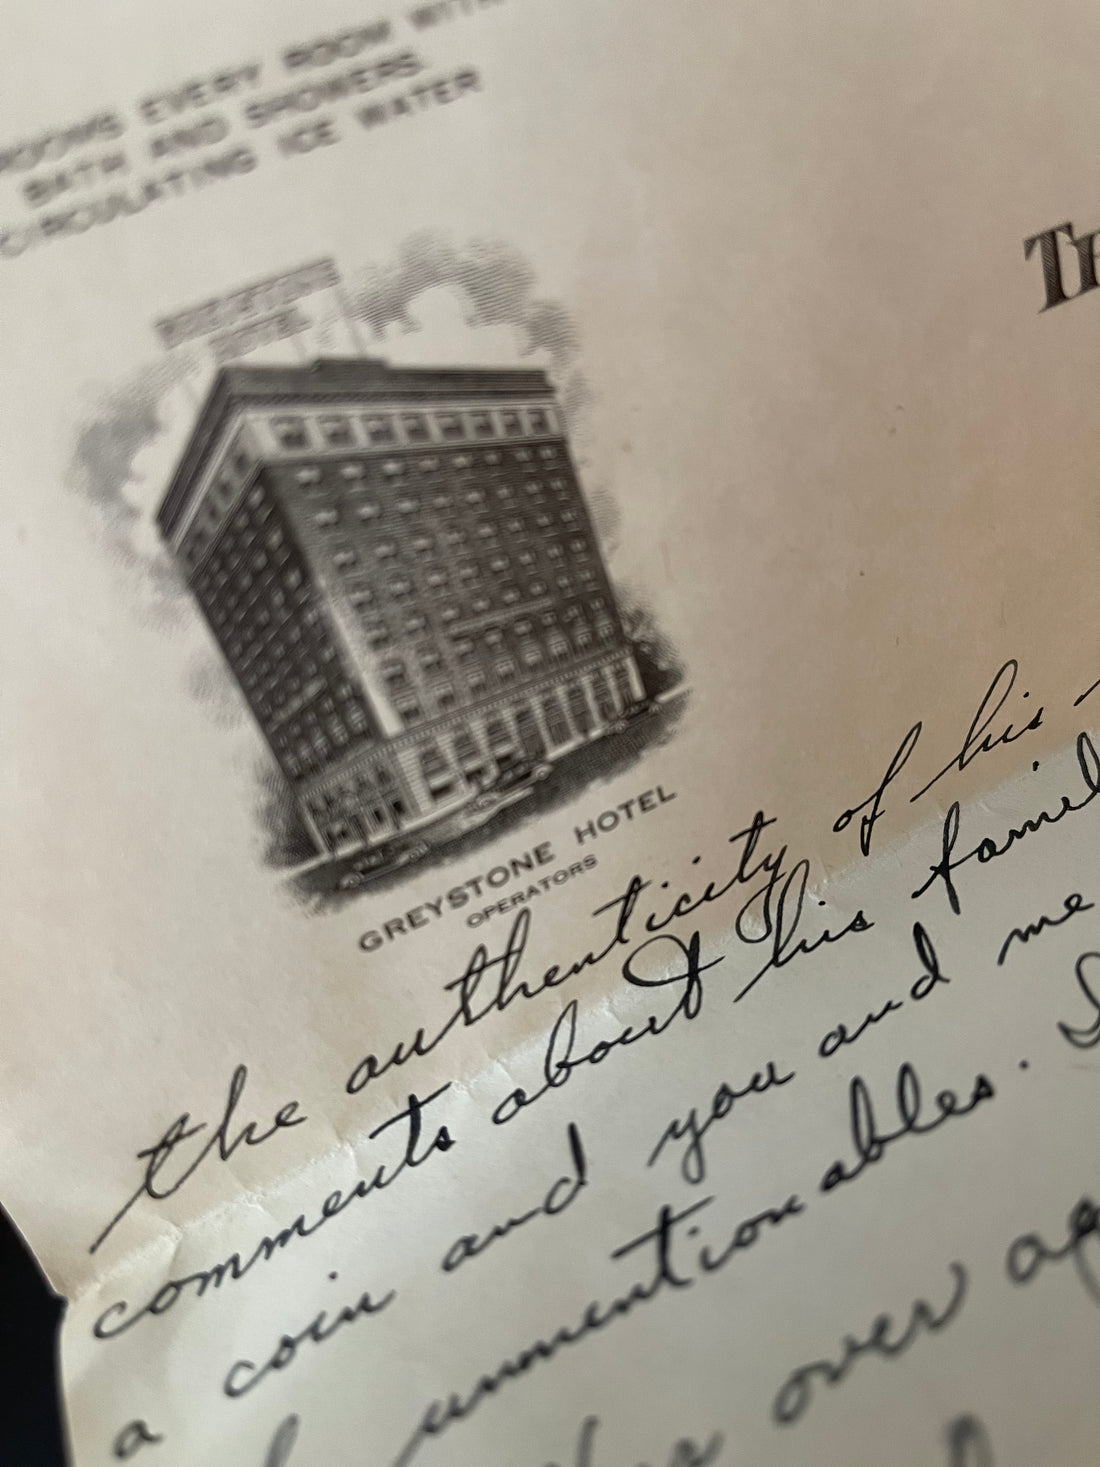 ROOMS EVERY ROOM WITH
BATH AND SHOWERS
CIRCULATING ICE WATER
TH
GREYSTONE HOTEL
OPERATORS
the authenticity of his
comments about his famil
a coin and you and me
unmentionables. I
over